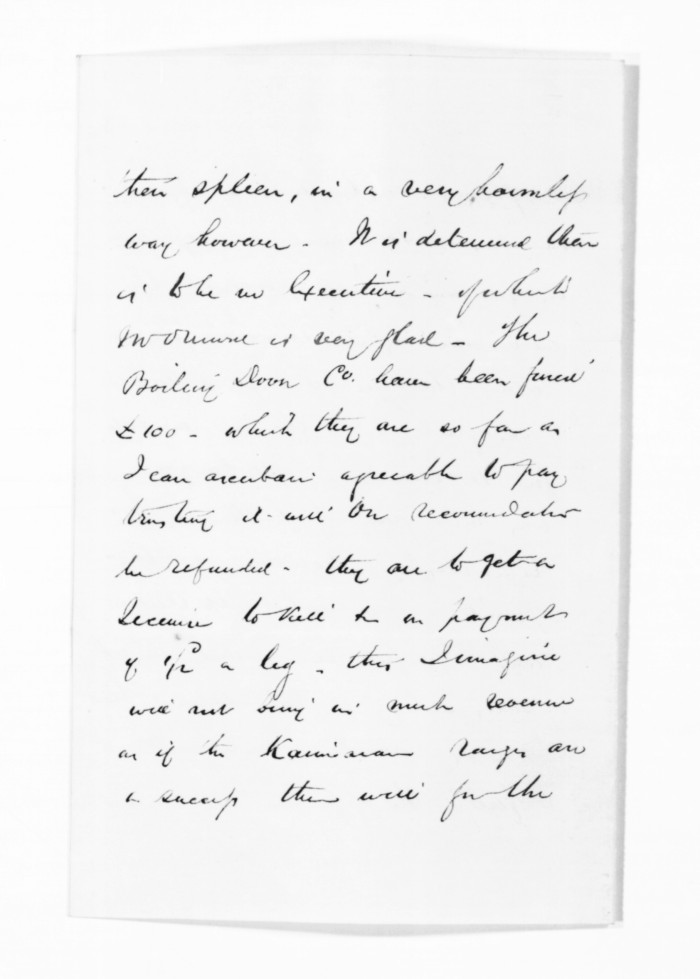 their spleen, in a very harmless
way however - It is determined there
is to be no Executive - of which
is very glad - The
Boiling Down Co. have been fined
£100 - which they are so far as
I can ascertain agreeable to pay
trusting it will on recommendation
be refunded - they are to get a
License to kill &c on payment
of a leg - this I imagine
will not bring in much revenue
as if the ranges are
a success there will for the